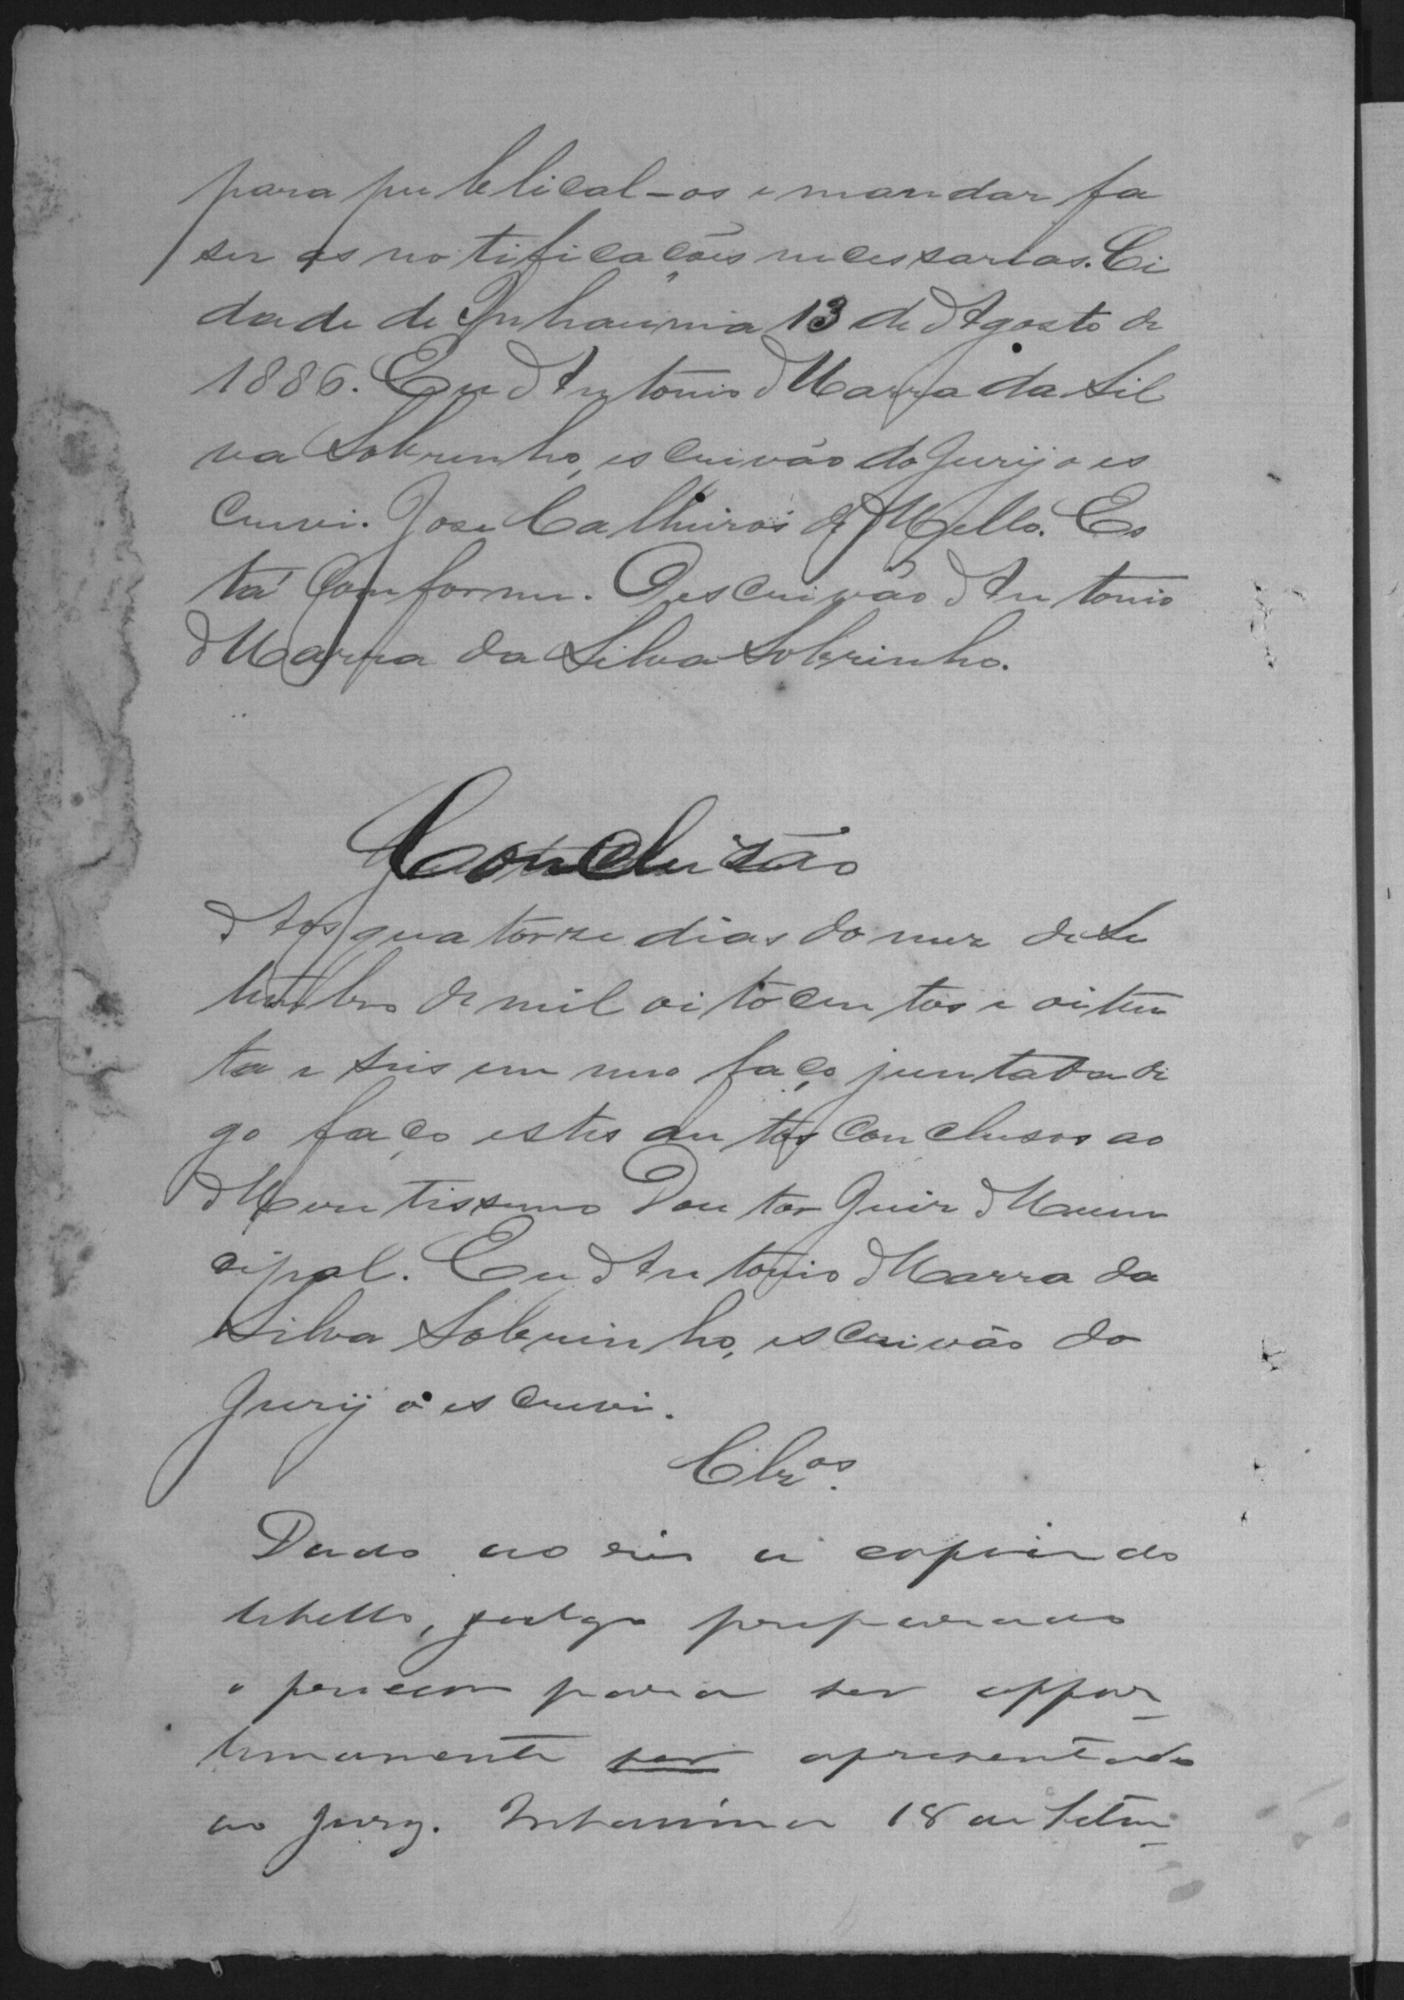 para publical-os e mandar fa
ser as notificações necessarias. Ci
dade de Inhaúma 13 de Agosto de
1886. Eu Antonio Marra da Sil
va Sobrinho, escrivão do Jury o es
crevi. José Calheiros de Mello. Es
tá conforme. O escrivão Antonio
Marra da Silva Sobrinho.
Conclusão
Aos quatorze dias do mez de Se
tembro de mil oitocentos e oiten
ta e seis em meo faço juntada di
go faço estes autos conclusos ao
Meretissimo Doutor Juiz Muni
cipal. Eu Antonio Marra da
Silva Sobrinho, escrivão do
Jury o escrevi.
Clzos.
Dado ao réo a copia do
libello, julgo preparado
o processo para ser oppor_
tunamente ser apresentado
ao Jury. Inhaúma 18 de Setem_